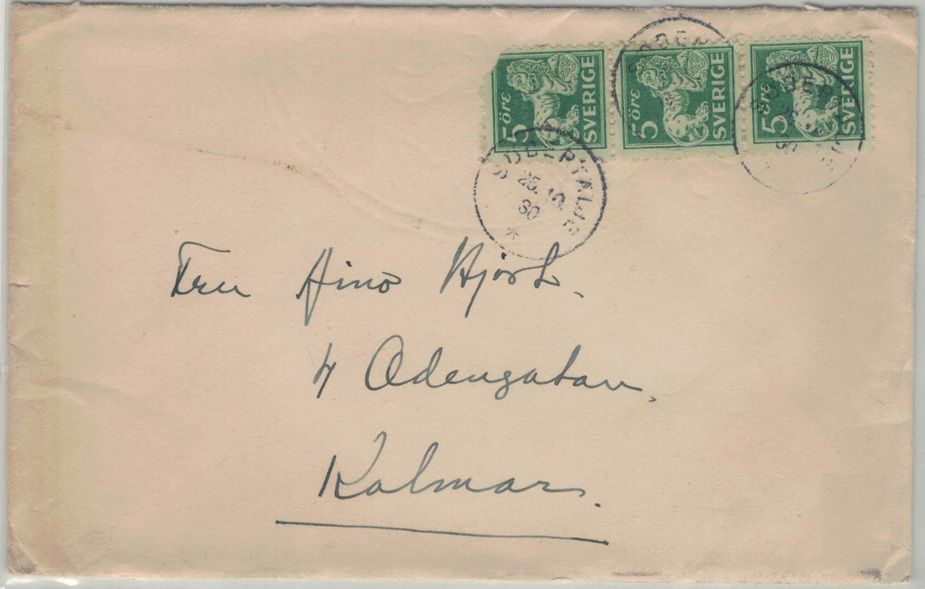 5 öre SVERIGE
5 öre SVERIGE
5 öre SVERIGE
SÖDERTÄLJE
25.10.
30
Fru Aino Hjort.
4 Odengatan,
Kalmar.